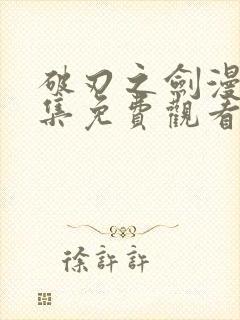 破刃之劍漫
集免費觀看
徐許許